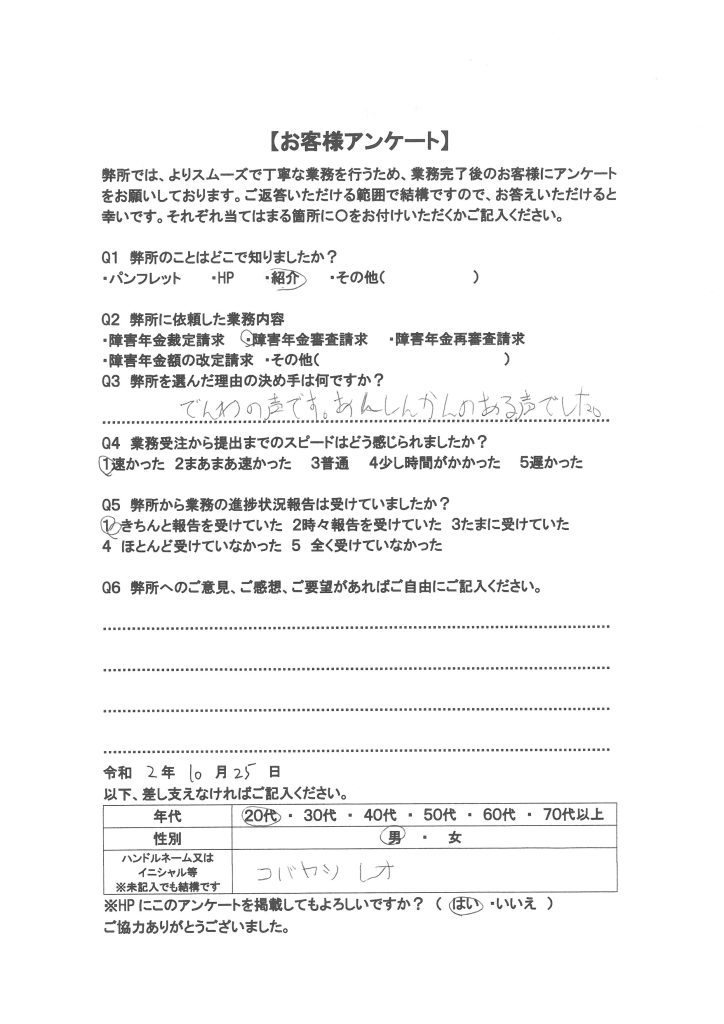 【お客様アンケート】
弊所では、よりスムーズで丁寧な業務を行うため、業務完了後のお客様にアンケート
をお願いしております。ご返答いただける範囲で結構ですので、お答えいただけると
幸いです。それぞれ当てはまる箇所に〇をお付けいただくかご記入ください。
Q1 弊所のことはどこで知りましたか?
・パンフレット ・HP ・紹介 ・その他( )
Q2 弊所に依頼した業務内容
・障害年金裁定請求 ・障害年金審査請求 ・障害年金再審査請求
・障害年金額の改定請求 ・その他( )
Q3 弊所を選んだ理由の決め手は何ですか?
でんわの声です。あんしんかんのある声でした。
Q4 業務受注から提出までのスピードはどう感じられましたか?
1速かった 2まあまあ速かった 3普通 4少し時間がかかった 5遅かった
Q5 弊所から業務の進捗状況報告は受けていましたか?
1きちんと報告を受けていた 2時々報告を受けていた 3たまに受けていた
4 ほとんど受けていなかった 5 全く受けていなかった
Q6 弊所へのご意見、ご感想、ご要望があればご自由にご記入ください。
令和 2年 10月25日
以下、差し支えなければご記入ください。
年代 20代・30代・40代・50代・60代・70代以上
性別 男・女
ハンドルネーム又は
イニシャル等
※未記入でも結構です
コバヤシ レオ
※HPにこのアンケートを掲載してもよろしいですか? ( はい・いいえ )
ご協力ありがとうございました。